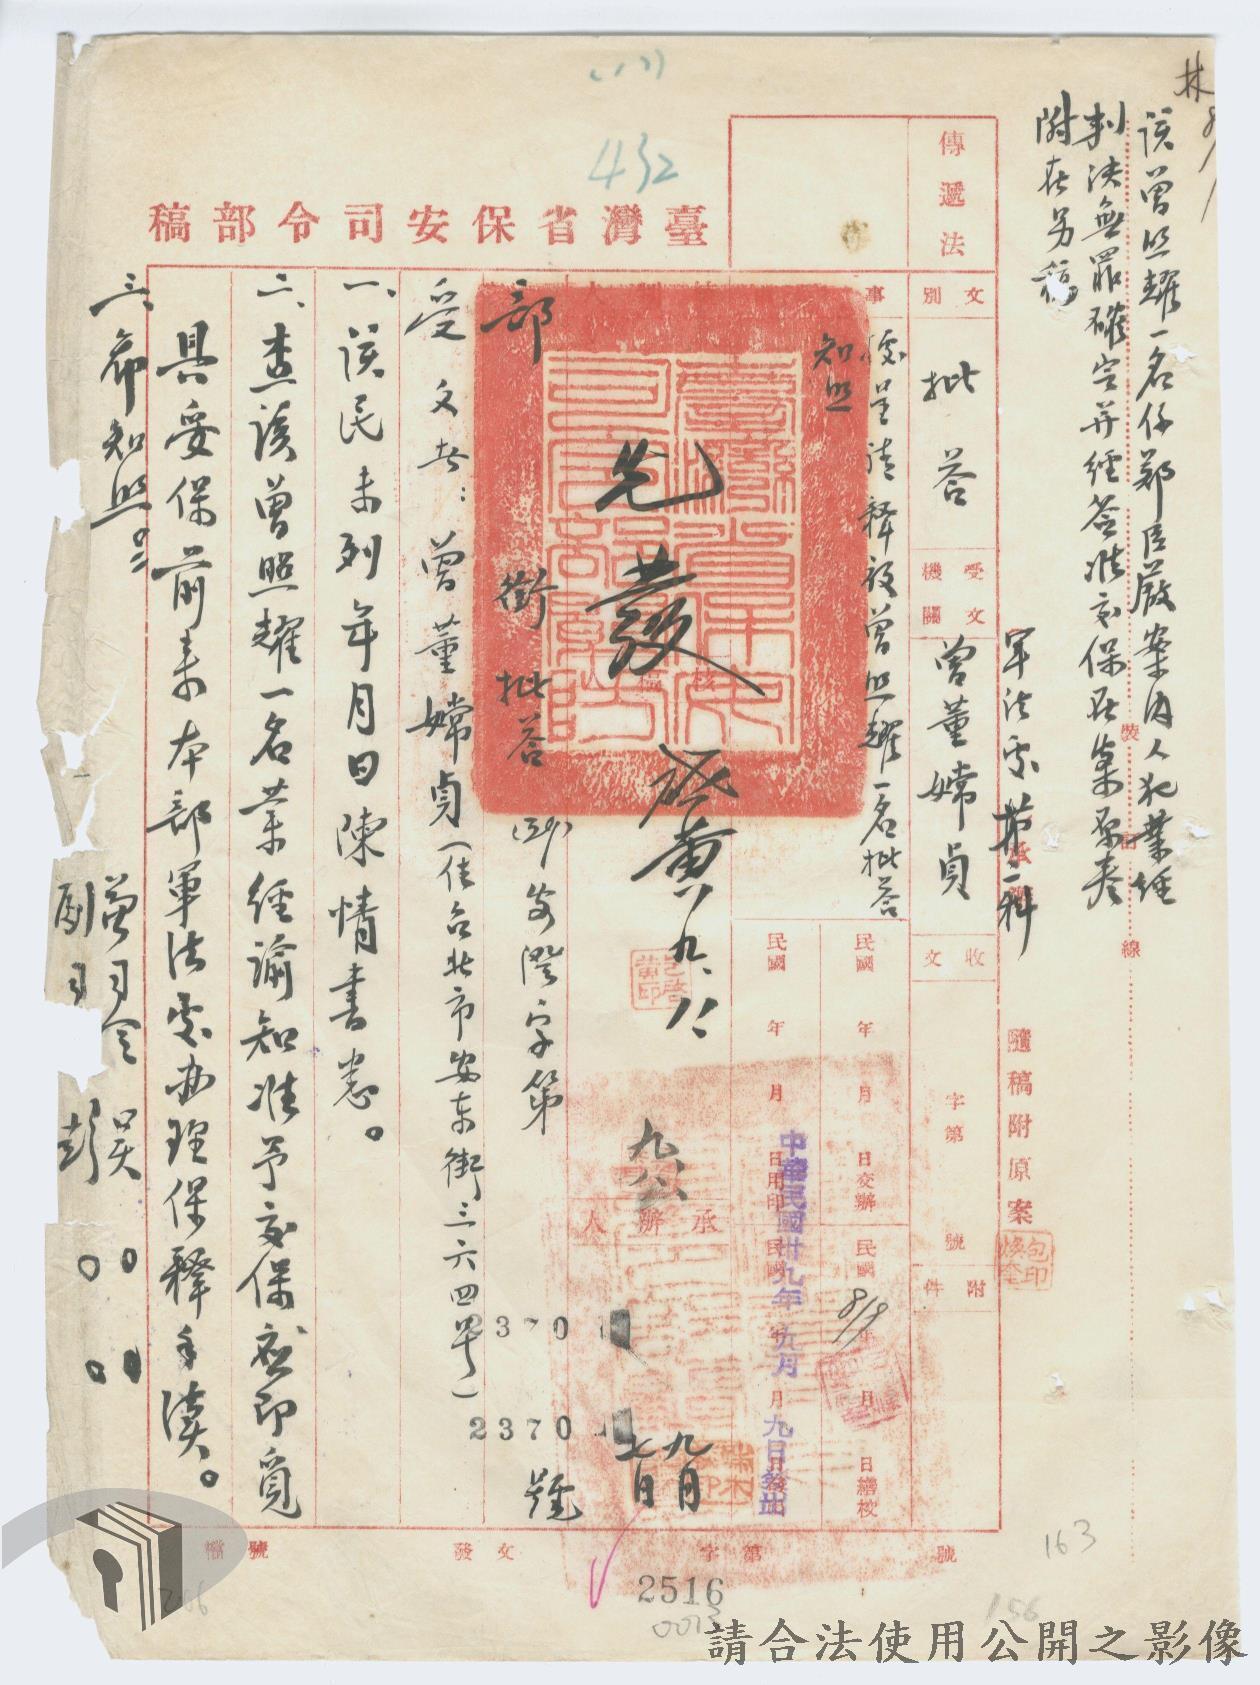 林
8/1
該曾照耀一名係鄭臣嚴案內人犯業經
判決無罪確定並經簽准交保在案原卷
附在另稿
裝
訂
線
軍法處第二科
隨稿附原案
傳遞法
(13)
432
臺灣省保安司令部稿
文別
批答
受文機關
曾董嫦貞
收文
字第
號
附件
事
據呈請釋放曾照耀一名批答
知照
民國 年 月 日交辦
民國 年 月 日繕校
8/9
民國 年 月 日用印
民國 年 月 日發出
中華民國卅九年九月九日發出
先發
黃九、八
九、八
承辦人
九月七日
部銜批答
(39)安澄字第
2370
2370
號
受文者：曾董嫦貞(住台北市安东街三六四號)
一、該民未列年月日陳情書悉。
二、查該曾照耀一名業經諭知准予交保應即覓
具妥保前來本部軍法處办理保釋手續。
三、希知照。
兼司令 吳○○
副司 彭○○
檔號
發文
字第
號
2516
0013
163
156
266
包煥奎印
請合法使用公開之影像